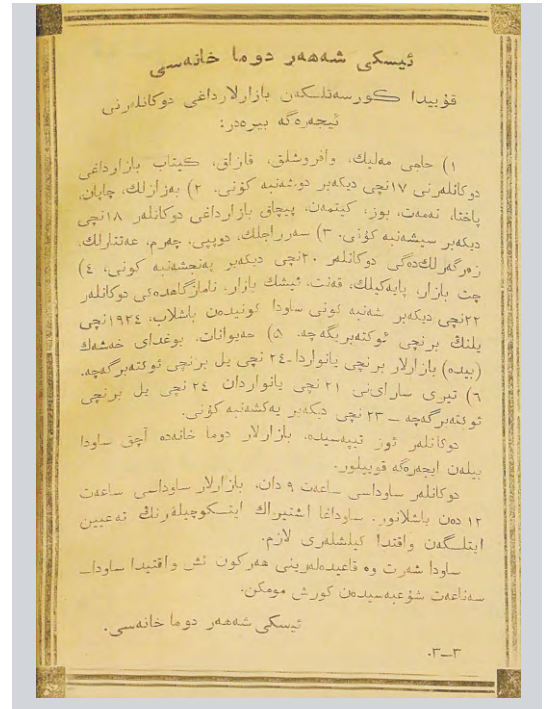 ئیسکی شەھەر دوما خانەسی
قۇییدا کورسەتلگەن بازارلارداغی دوکانلەرنی
ئیجەرەگە بیرەدر:
١) حاجی مەلیك، وافروشلق، قازاق، کیتاب بازارداغی
دوکانلەرنی ١٧نچی دیکەبر دوشەنبە کۇنی. ٢) بەززازلك، چاپان،
پاختا، نەمەت، بوز، کیتمەن، پیچاق بازارداغی دوکانلەر ١٨نچی
دیکەبر سیشەنبە کۇنی. ٣) سەرراجلك، دوپپی، چەرم، عەتتارلك،
زەرگەرلكدەگی دوکانلەر ٢٠نچی دیکەبر پەنجشەنبە کونی، ٤)
چت بازار، پایەکیلك، قەنت، ئیشك بازار، نامازگاھدەگی دوکانلەر
٢٢نچی دیکەبر شەنبە کونی ساودا کونیدەن باشلاب، ١٩٢٤نچی
یلنڭ برنچی ئوکتەبریگەچە. ۵) حەیوانات، بوغدای خەشەك
(بیدە) بازارلار برنچی یانواردا۔٢٤ نچی یل برنچی ئوکتەبرگەچە.
٦) تیری سارای‌نی ٢١ نچی یانواردان ٢٤ نچی یل برنچی
ئوکتەبرگەچە ــ ٢٣ نچی دیکەبر یەکشەنبە کۇنی.
دوکانلەر ئوز تیپەسیدە، بازارلار دوما خانەدە آچق ساودا
بیلەن ایجەرەگە قویبلور.
دوکانلەر ساوداسی ساعەت ٩ دان، بازارلار ساوداسی ساعەت
١٢ دەن باشلانور. ساوداغا اشتیراك ایتکوچیلەرنڭ تەعیین
ایتلگەن واقتدا کیلشلەری لازم.
ساودا شەرت وە قاعیدەلەرینی ھەرکون ئش واقتیدا ساودا۔
سەناعەت شۇعبەسیدەن کورش مومکن.
ئیسکی شەھەر دوما خانەسی.
٣ــ٣.